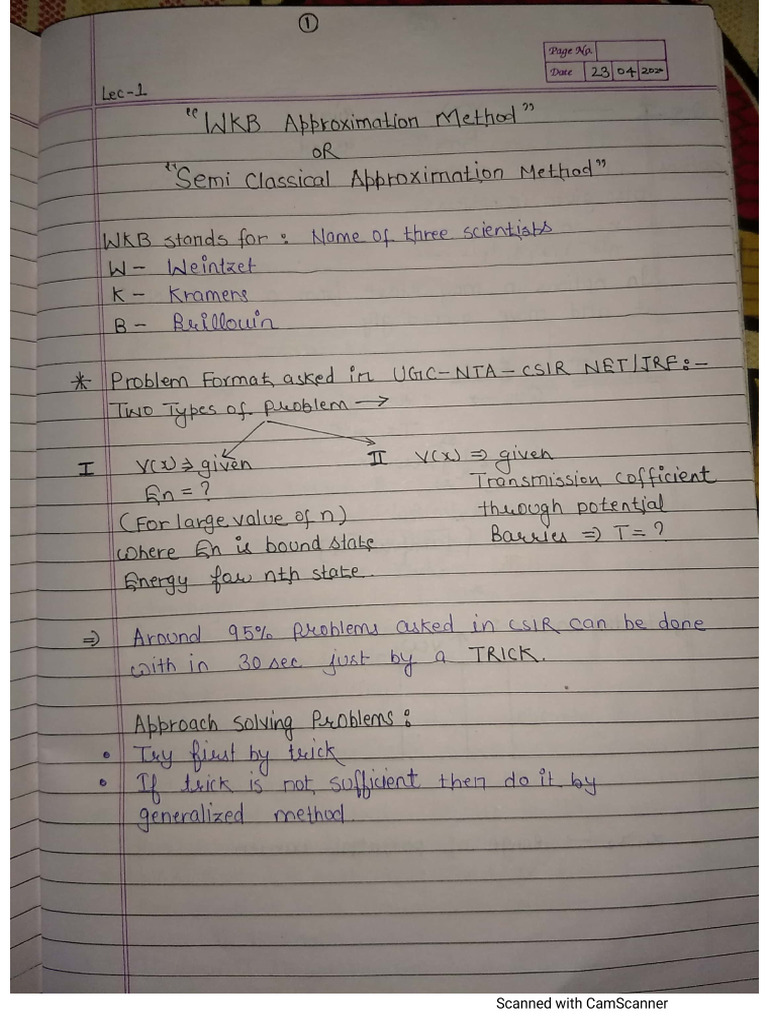 ①
Page No.
Date 23 04 2020
Lec-1
"WKB Approximation Method"
OR
"Semi Classical Approximation Method"
WKB stands for : Name of three scientists
W - Weintzet
K - Kramers
B - Brillouin
* Problem Format asked in UGC-NTA-CSIR NET/JRF:-
Two Types of problem →
I V(x) ⇒ given
En = ?
(For large value of n)
where En is bound state
Energy for nth state.
II V(x) ⇒ given
Transmission cofficient
through potential
Barries ⇒ T = ?
⇒ Around 95% problems asked in CSIR can be done
with in 30 sec just by a TRICK.
Approach Solving Problems:
• Try first by trick
• If trick is not sufficient then do it by
generalized method.
Scanned with CamScanner